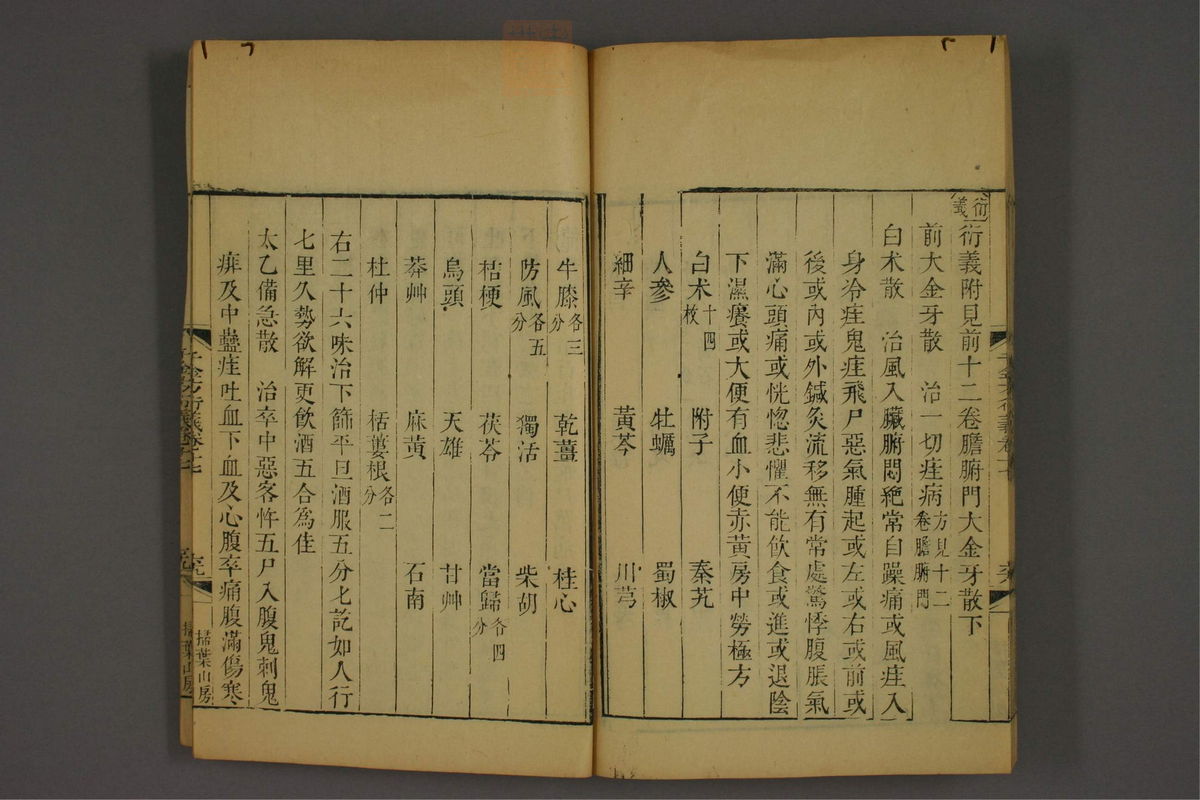 衍義
衍義附見前十二卷膽腑門大金牙散下
前大金牙散　治一切疰病方見十二卷膽腑門
白朮散　治風入臟腑悶絶常自躁痛或風疰入
身冷疰鬼疰飛尸惡氣腫起或左或右或前或
後或內或外鍼灸流移無有常處驚悸腹脹氣
滿心頭痛或恍惚悲懼不能飲食或進或退陰
下濕癢或大便有血小便赤黃房中勞極方
白朮十四枚　附子　秦艽
人參　牡蠣　蜀椒
細辛　黃芩　川芎
牛膝各三分　乾薑　桂心
防風各五分　獨活　柴胡
桔梗　茯苓　當歸各四分
烏頭　天雄　甘艸
莽艸　麻黃　石南
杜仲　栝蔞根各二分
右二十六味治下篩平旦酒服五分匕訖如人行
七里久勢欲解更飲酒五合爲佳
太乙備急散　治卒中惡客忤五尸入腹鬼刺鬼
痱及中蠱疰吐血下血及心腹卒痛腹滿傷寒
千金方衍義卷十七
掃葉山房